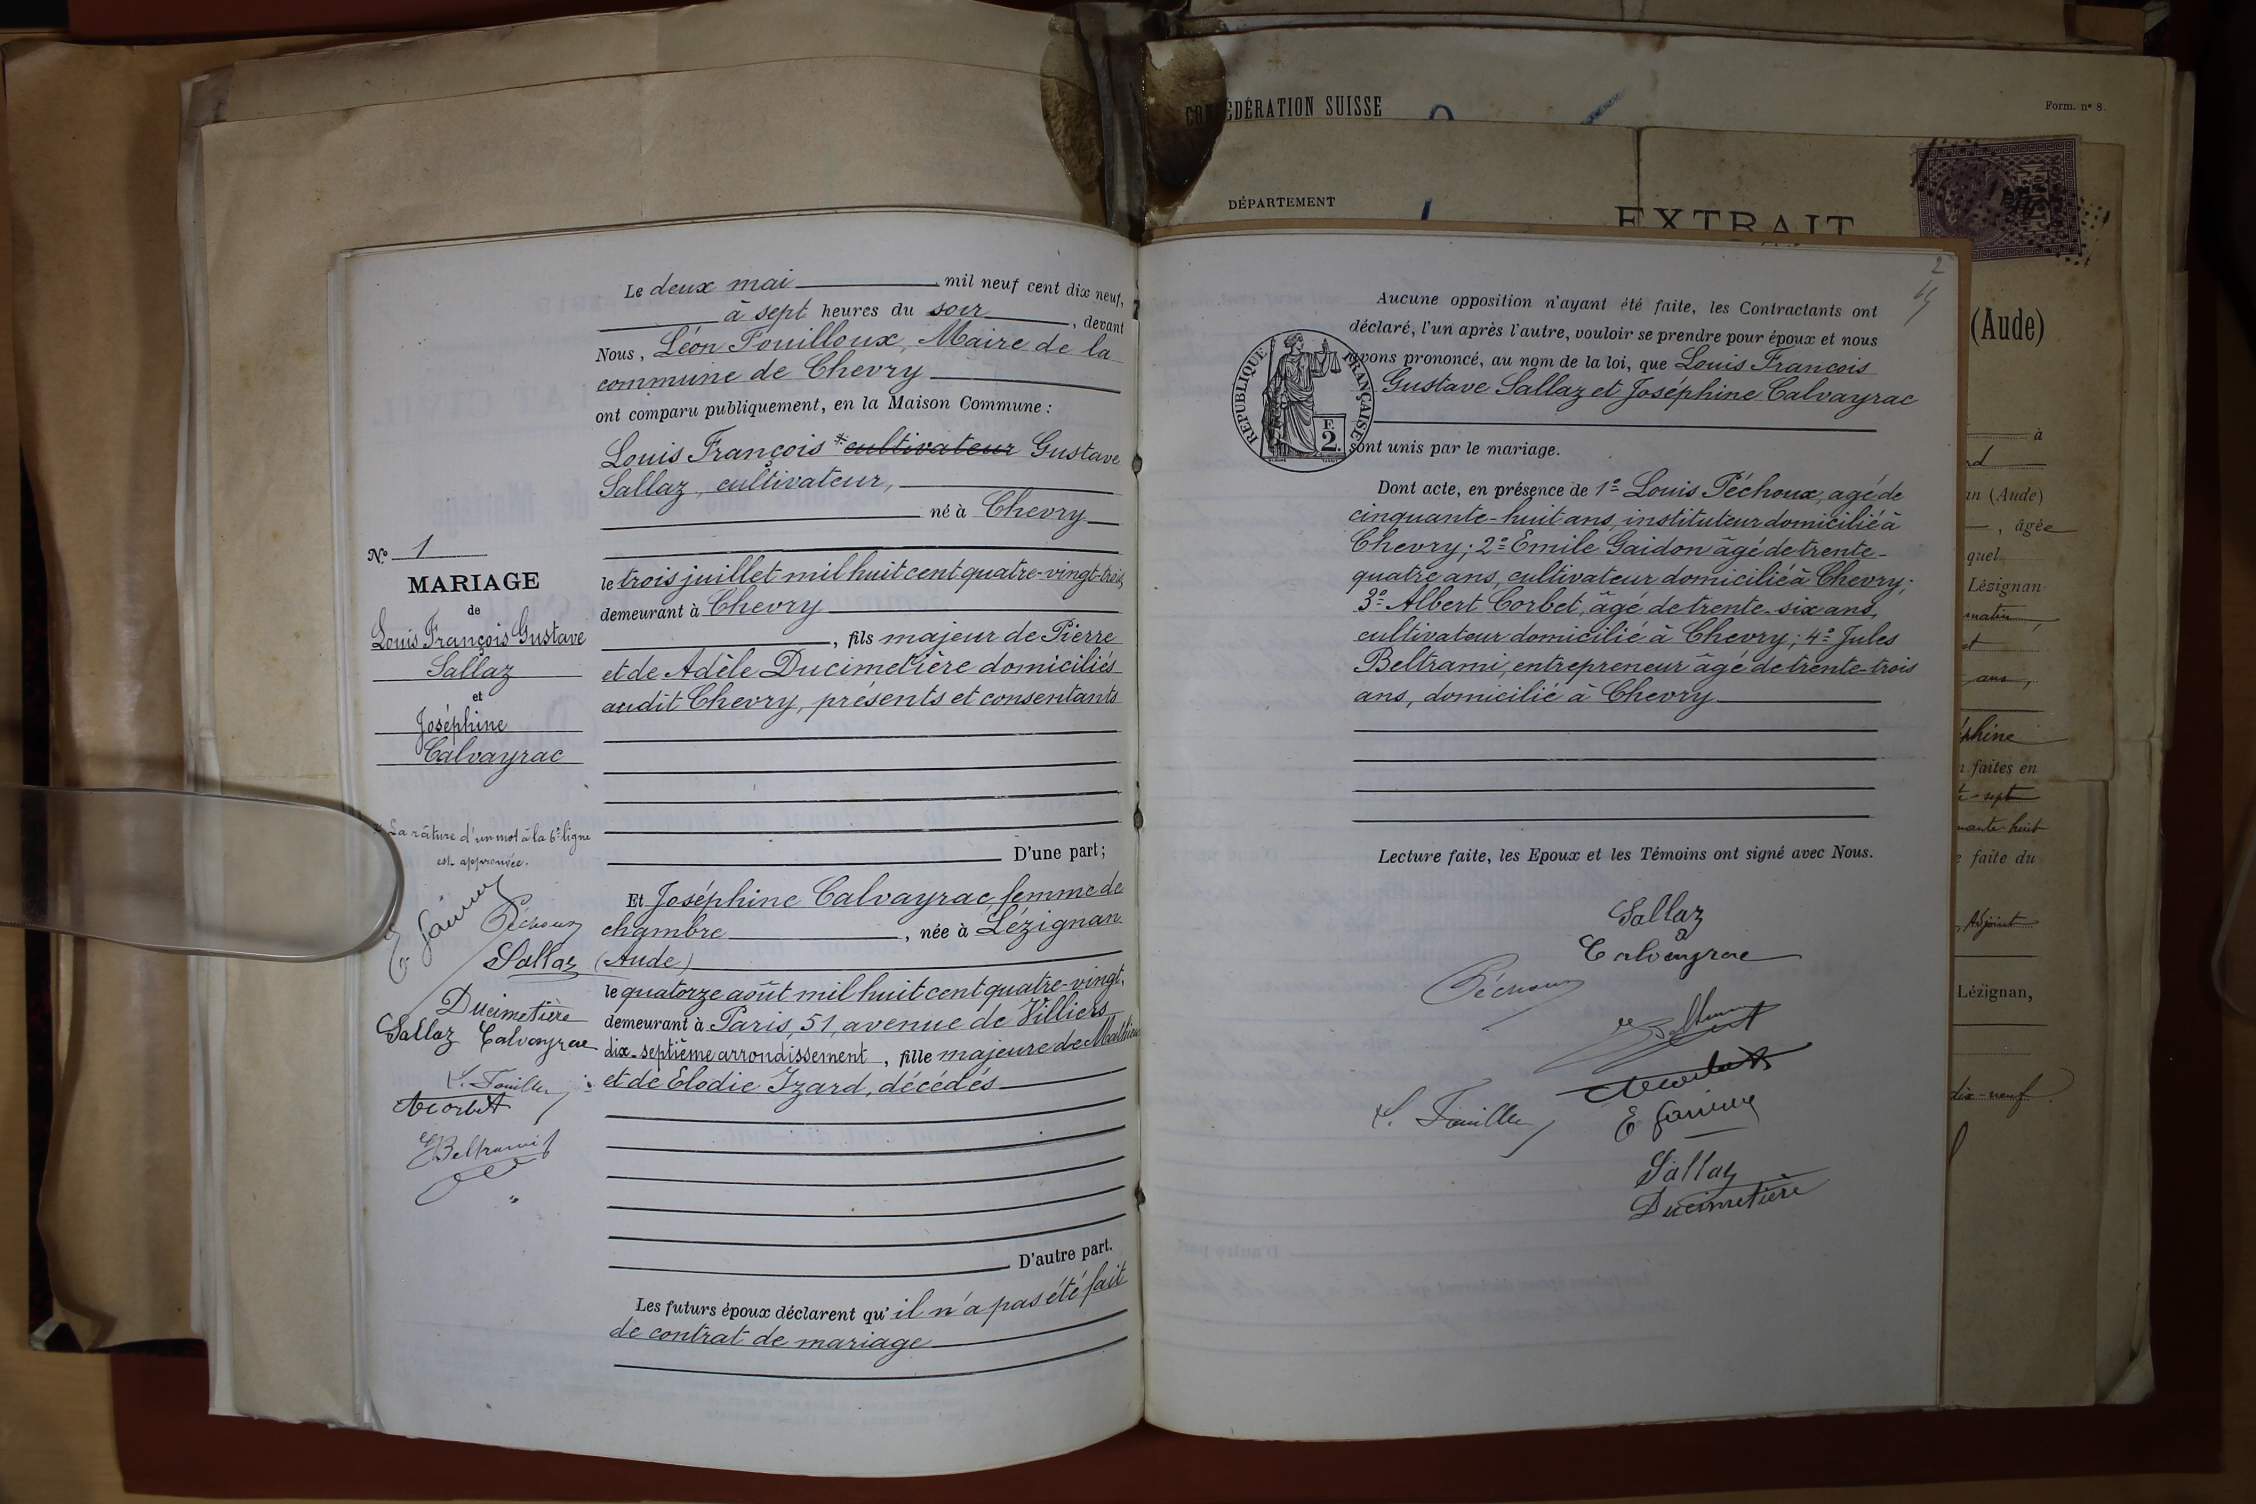 CONFÉDÉRATION SUISSE
Form. nº 8.
DÉPARTEMENT
EXTRAIT
(Aude)
Nº 1
MARIAGE
de
Louis François Gustave
Sallaz
et
Joséphine
Calvayrac
La râture d'un mot à la 6e ligne
est approuvée.
Péchoux
Sallaz
Ducimetière
Sallaz Calvayrac
L. Fouilloux
A Corbet
Beltrami
Le deux mai mil neuf cent dix neuf,
à sept heures du soir, devant
Nous, Léon Fouilloux, Maire de la
commune de Chevry
ont comparu publiquement, en la Maison Commune :
Louis François * cultivateur Gustave
Sallaz, cultivateur,
né à Chevry
le trois juillet mil huit cent quatre-vingt-trois,
demeurant à Chevry
, fils majeur de Pierre
et de Adèle Ducimetière domiciliés
audit Chevry, présents et consentants
D'une part;
Et Joséphine Calvayrac, femme de
chambre, née à Lézignan
(Aude)
le quatorze août mil huit cent quatre-vingt,
demeurant à Paris, 51, avenue de Villiers
dix-septième arrondissement, fille majeure de Mathieu
et de Elodie Izard, décédés
D'autre part.
Les futurs époux déclarent qu'il n'a pas été fait
de contrat de mariage
2
Aucune opposition n'ayant été faite, les Contractants ont
déclaré, l'un après l'autre, vouloir se prendre pour époux et nous
avons prononcé, au nom de la loi, que Louis François
Gustave Sallaz et Joséphine Calvayrac
REPUBLIQUE FRANÇAISE
F.
2.
sont unis par le mariage.
Dont acte, en présence de 1º Louis Péchoux, agé de
cinquante-huit ans, instituteur domicilié à
Chevry; 2º Emile Gaidon âgé de trente-
quatre ans, cultivateur domicilié à Chevry;
3º Albert Corbet, âgé de trente-six ans,
cultivateur domicilié à Chevry; 4º Jules
Beltrami, entrepreneur âgé de trente-trois
ans, domicilié à Chevry
Lecture faite, les Epoux et les Témoins ont signé avec Nous.
Sallaz
Calvayrac
Péchoux
Beltrami
A Corbet
L. Fouilloux
Sallaz
Ducimetière
à
an (Aude)
, âgée
quel
Lézignan
matin,
ans,
phine
faites en
sept
ante huit
faite du
Adjoint
Lézignan,
dix-neuf